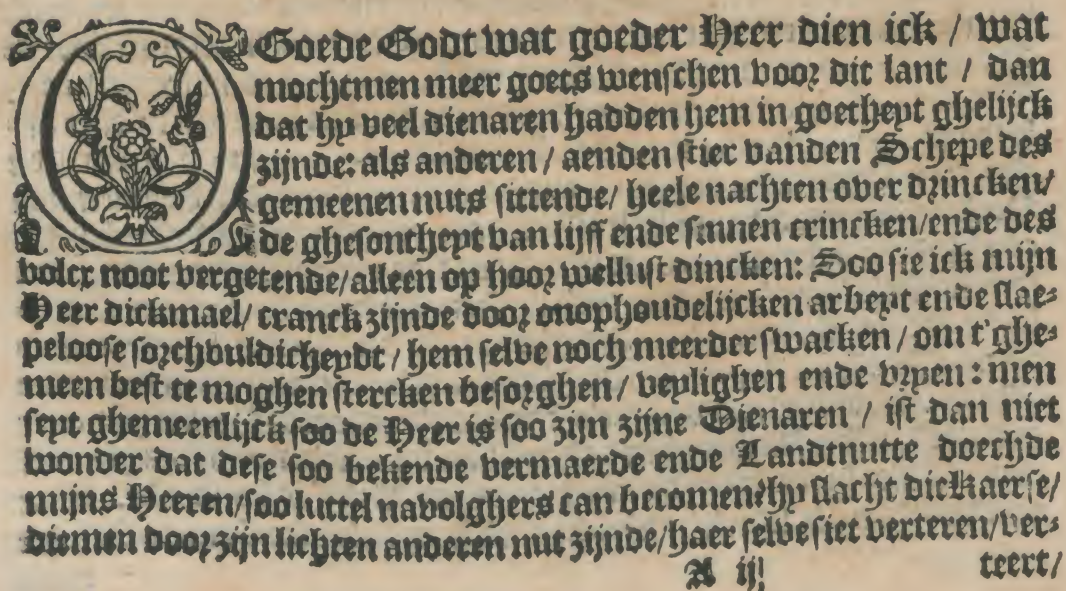 O Goede Godt wat goeder Heer dien ick / wat
mochtmen meer goets wenschen voor dit lant / dan
dat hy veel dienaren hadden hem in goetheyt ghelijck
zijnde: als anderen / aenden stier vanden Schepe des
gemeenen nuts sittende / heele nachten over drincken /
de ghesontheyt van lijff ende sinnen crincken / ende des
volcx noot vergetende / alleen op hoor wellust dincken: Soo sie ick mijn
Heer dickmael / cranck zijnde door onophoudelijcken arbeyt ende slae-
peloose sorchvuldicheydt / hem selve noch meerder swacken / om t'ghe-
meen best te moghen stercken besorghen / veylighen ende vryen : men
seyt ghemeenlijck soo de Heer is soo zijn zijne Dienaren / ist dan niet
wonder dat dese soo bekende vermaerde ende Landtnutte doechde
mijns Heeren / soo luttel navolghers can becomen? hy slacht dic Kaerse /
diemen door zijn lichten anderen nut zijnde / haer selve siet verteren / ver-
A ij teert /